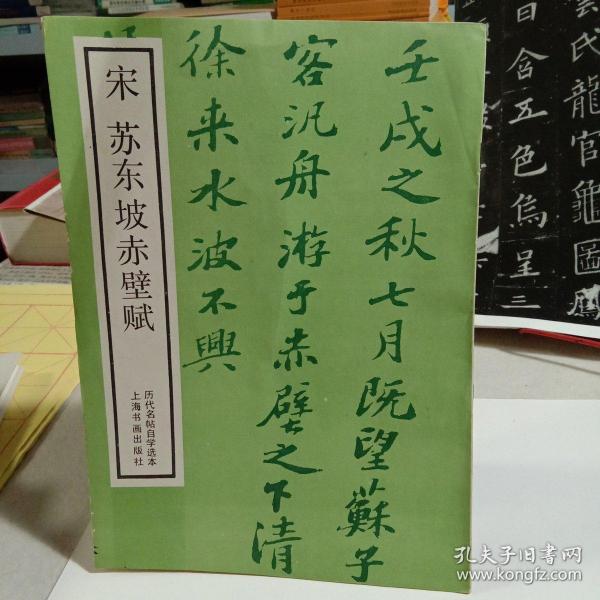 宋 苏东坡赤壁赋
历代名帖自学选本
上海书画出版社
壬戌之秋七月既望蘇子
客汎舟游于赤壁之下清
徐来水波不興
曰含五色烏呈三
雲氏龍官龜圖鳳
孔夫子旧書网
www.kongfz.com